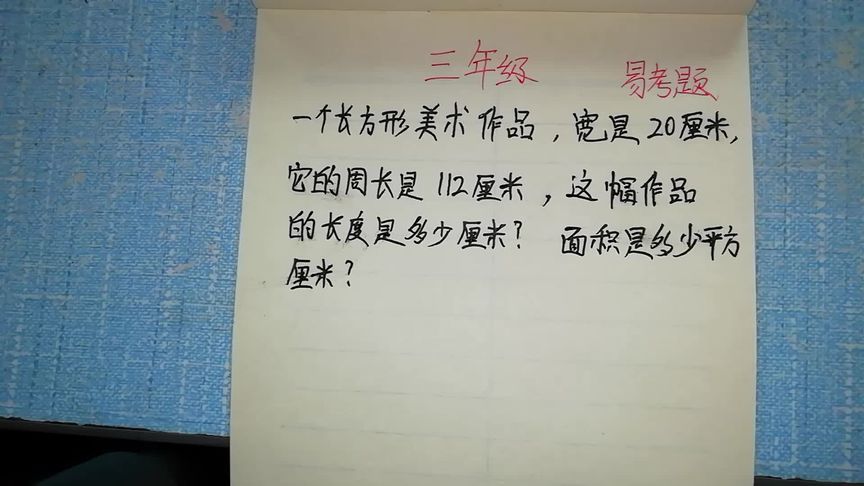 三年级 易考题
一个长方形美术作品，宽是20厘米，
它的周长是112厘米，这幅作品
的长度是多少厘米？面积是多少平方
厘米？